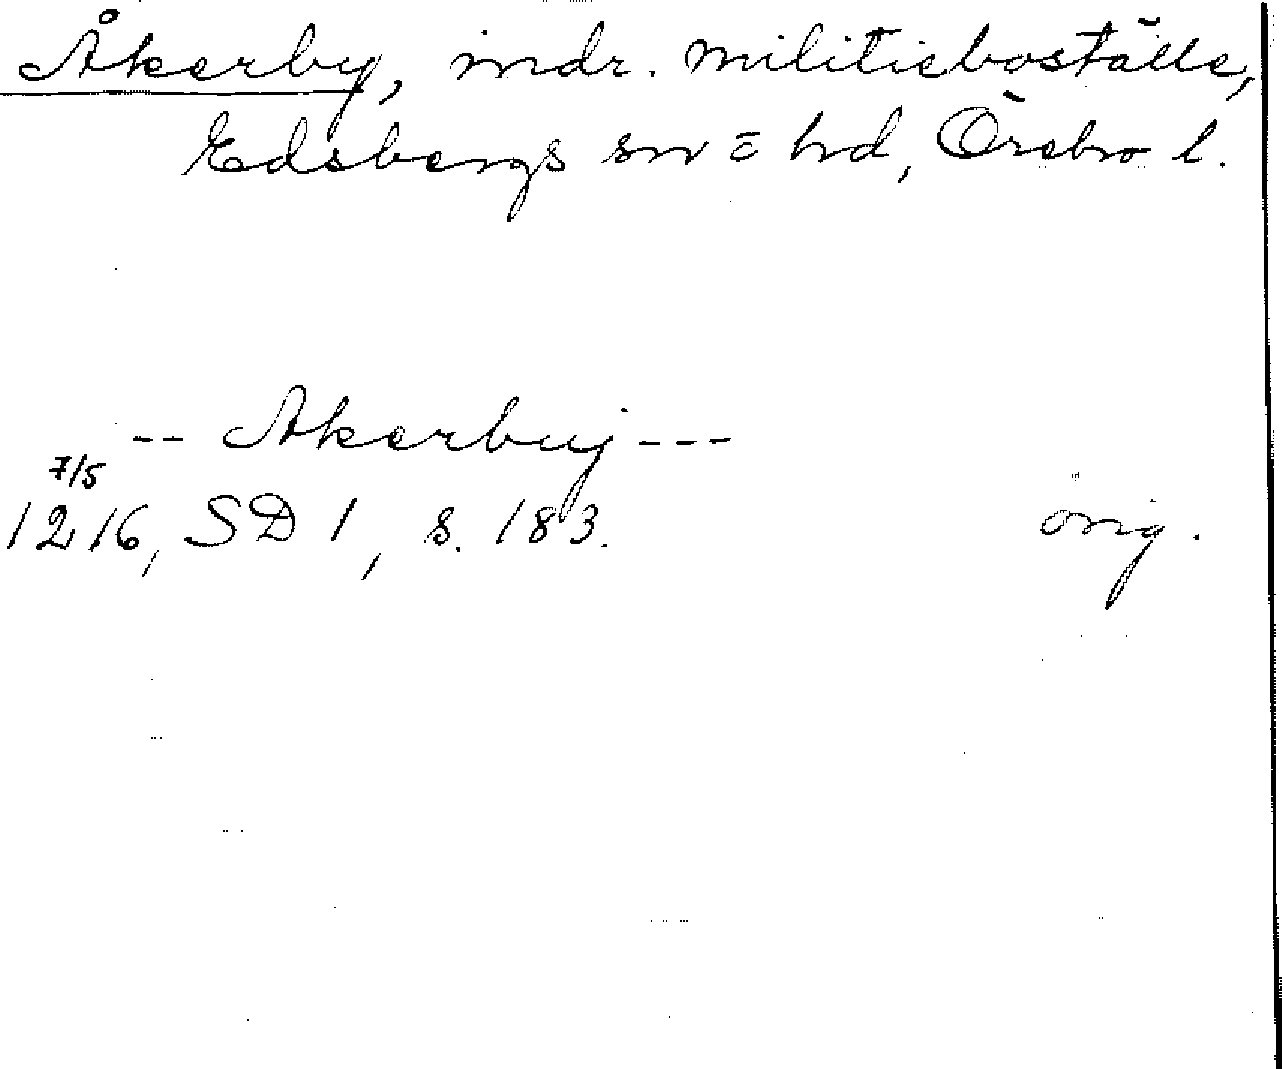 Åkerby, indr. militieboställe,
Edsbergs sn = hd, Örebro l.
-- Akerbuj ---
7/5
1216, SD 1, s. 183. orig.